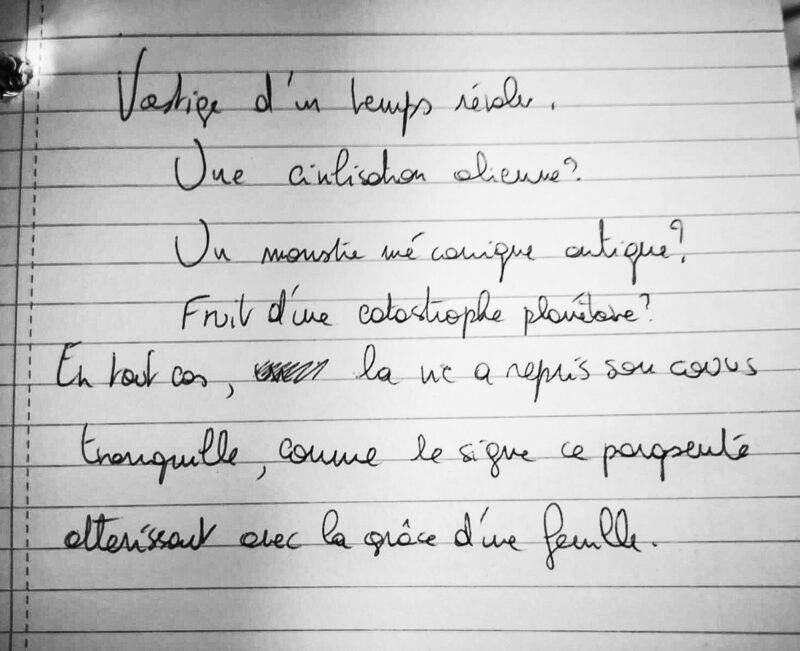 Vestige d'un temps révolu.
Une civilisation alienne?
Un monstre mécanique antique?
Fruit d'une catastrophe planétaire?
En tout cas, la vie a repris son cours
tranquille, comme le signe ce
atterissant avec la grâce d'une feuille.